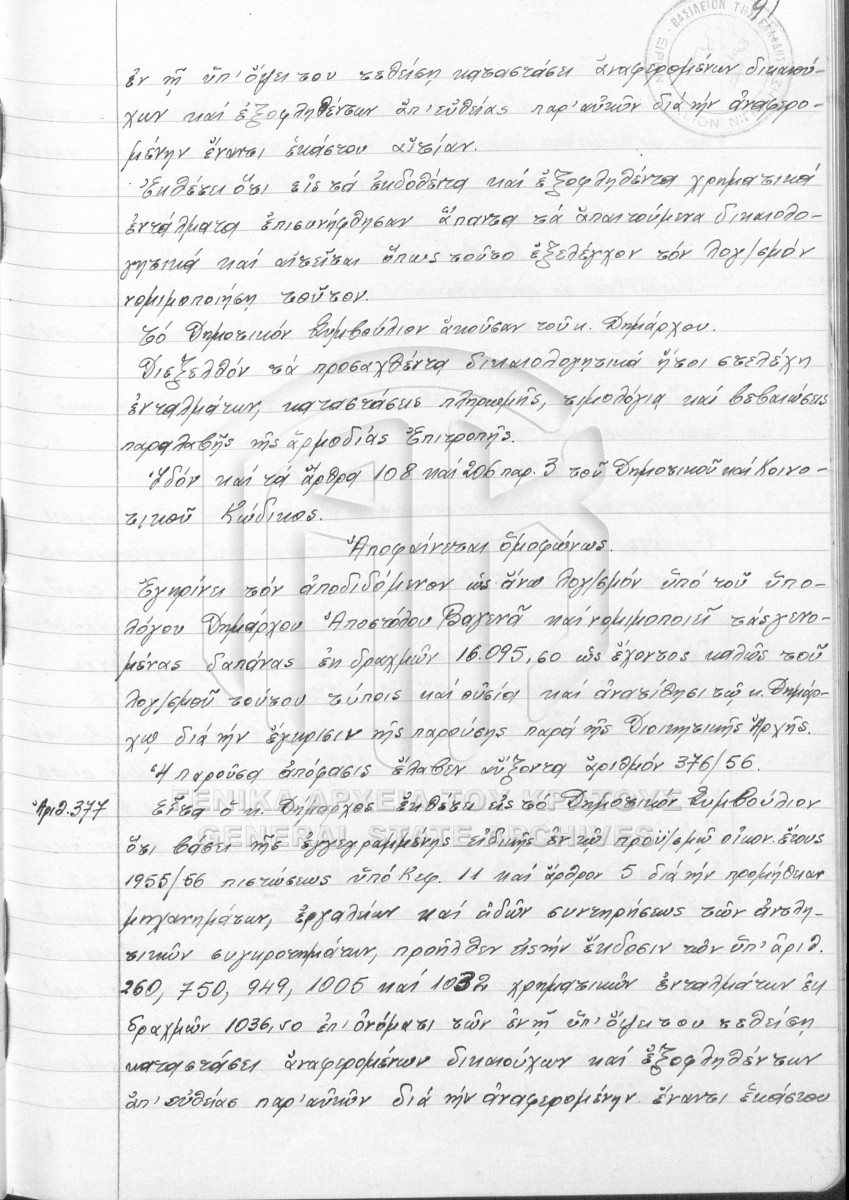 91
ΒΑΣΙΛΕΙΟΝ ΤΗΣ ΕΛΛΑΔΟΣ
ἐν τῇ ὑπ' ὄψει του τεθείσῃ καταστάσει ἀναφερομένων δικαιού-
χων καί ἐξοφληθέντων ἀπ' εὐθείας παρ' αὐτῶν διά τήν ἀναφερο-
μένην ἔναντι ἑκάστου αἰτίαν.
Ἐκθέτει ὅτι εἰς τά ἐκδοθέντα καί ἐξοφληθέντα χρηματικά
ἐντάλματα ἐπισυνήφθησαν ἅπαντα τά ἀπαιτούμενα δικαιολο-
γητικά καί αἰτεῖται ὅπως τοῦτο ἐξελέγχον τόν λογ/σμόν
νομιμοποιήση τοῦτον.
Τό Δημοτικόν Συμβούλιον ἀκοῦσαν τοῦ κ. Δημάρχου.
Διεξελθόν τά προσαχθέντα δικαιολογητικά ἤτοι στελέχη
ἐνταλμάτων, καταστάσεις πληρωμῆς, τιμολόγια καί βεβαιώσεις
παραλαβῆς τῆς ἁρμοδίας Ἐπιτροπῆς.
Ἰδόν καί τά ἄρθρα 108 καί 206 παρ. 3 τοῦ Δημοτικοῦ καί Κοινο-
τικοῦ Κώδικος.
Ἀποφαίνεται ὁμοφώνως.
Ἐγκρίνει τόν ἀποδιδόμενον ὡς ἄνω λογ/σμόν ὑπό τοῦ ὑπο-
λόγου Δημάρχου Ἀποστόλου Βαγενᾶ καί νομιμοποιεῖ τάς γενο-
μένας δαπάνας ἐκ δραχμῶν 16.095,60 ὡς ἔχοντος καλῶς τοῦ
λογ/σμοῦ τούτου τύποις καί οὐσίᾳ καί ἀνατίθησι τῷ κ. Δημάρ-
χῳ διά τήν ἔγκρισιν τῆς παρούσης παρά τῆς Διοικητικῆς Ἀρχῆς.
Ἡ παροῦσα ἀπόφασις ἔλαβεν αὔξοντα ἀριθμόν 376/56.
Ἀριθ. 377 Εἶτα ὁ κ. Δήμαρχος ἐκθέτει εἰς τό Δημοτικόν Συμβούλιον
ΓΕΝΙΚΑ ΑΡΧΕΙΑ ΤΟΥ ΚΡΑΤΟΥΣ
GENERAL STATE ARCHIVES
ὅτι βάσει τῆς ἐγγεγραμμένης εἰδικῆς ἐν τῷ προϋ/σμῷ οἰκον. ἔτους
1955/56 πιστώσεως ὑπό Κεφ. 11 καί ἄρθρον 5 διά τήν προμήθειαν
μηχανημάτων, ἐργαλείων καί εἰδῶν συντηρήσεως τῶν ἀντλη-
τικῶν συγκροτημάτων, προῆλθεν εἰς τήν ἔκδοσιν τῶν ὑπ' ἀριθ.
260, 750, 949, 1005 καί 1032 χρηματικῶν ἐνταλμάτων ἐκ
δραχμῶν 1036,50 ἐπ' ὀνόματι τῶν ἐν τῇ ὑπ' ὄψει του τεθείσῃ
καταστάσει ἀναφερομένων δικαιούχων καί ἐξοφληθέντων
ἀπ' εὐθείας παρ' αὐτῶν διά τήν ἀναφερομένην ἔναντι ἑκάστου